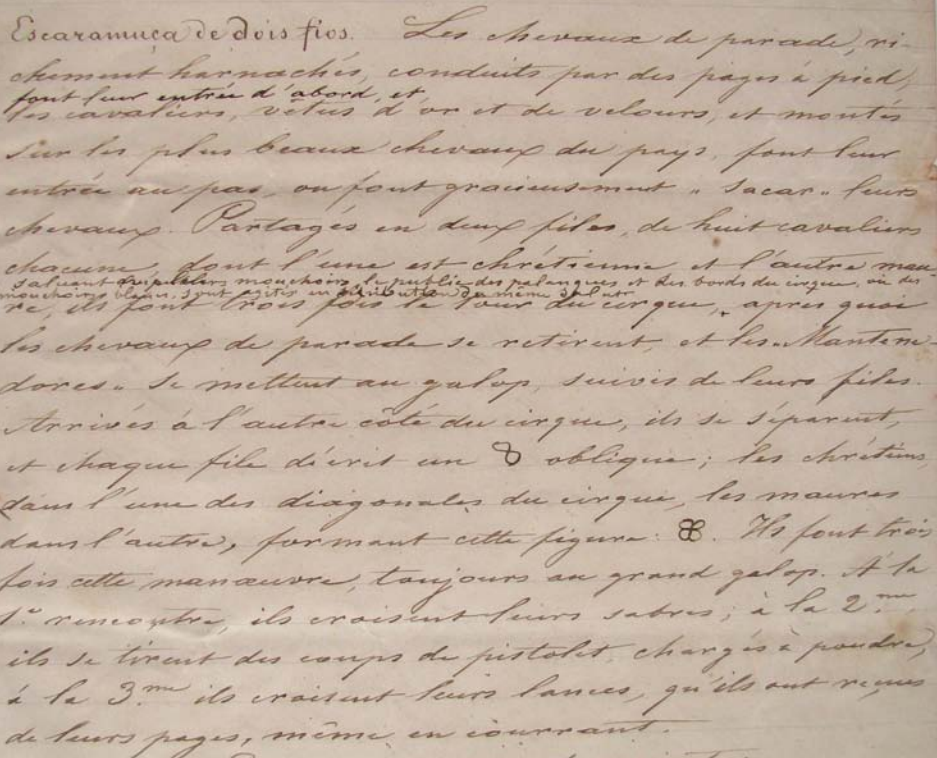 Escaramuça de dois fios. Les chevaux de parade, ri-
chement harnachés, conduits par des pages à pied,
font leur entrée d'abord, et
les cavaliers, vêtus d'or et de velours, et montés
sur les plus beaux chevaux du pays, font leur
entrée au pas, ou font gracieusement „ sacar „ leurs
chevaux. Partagés en deux files, de huit cavaliers
chacune, dont l'une est chrétienne et l'autre mau-
saluant mouchoirs le public des palanques et des bords du cirque, où des
mouchoirs blancs, sont agités en du même salut
re, ils font trois fois le tour du cirque, après quoi
les chevaux de parade se retirent, et les „ Mantene-
dores „ se mettent au galop, suivis de leurs files.
Arrivés à l'autre côté du cirque, ils se séparent,
et chaque file décrit un 8 oblique; les chrétiens,
dans l'une des diagonales du cirque, les maures
dans l'autre, formant cette figure: . Ils font trois
fois cette manœuvre, toujours au grand galop. À la
1.e rencontre, ils croisent leurs sabres; à la 2.me
ils se tirent des coups de pistolet, chargés à poudre,
à la 3.me ils croisent leurs lances, qu'ils ont reçues
de leurs pages, même en courrant.